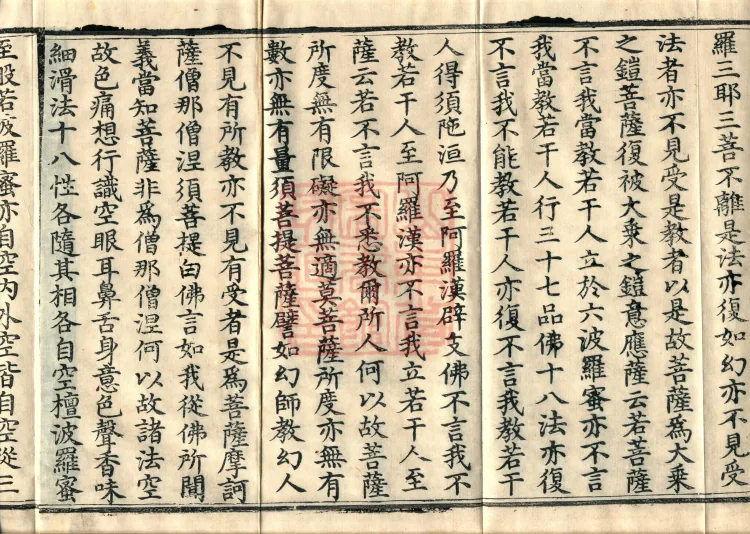 羅三耶三菩不離是法亦復如幻亦不見受
法者亦不見受是教者以是故菩薩為大乗
之鎧菩薩復被大乗之鎧意應薩云若菩薩
不言我當教若干人立於六波羅蜜亦不言
我當教若干人行三十七品佛十八法亦復
不言我不能教若干人亦復不言我教若干
人得須陁洹乃至阿羅漢辟支佛不言我不
教若干人至阿羅漢亦不言我立若干人至
薩云若不言我不悉教爾所人何以故菩薩
所度無有限礙亦無適莫菩薩所度亦無有
數亦無有量須菩提菩薩譬如幻師教幻人
不見有所教亦不見有受者是為菩薩摩訶
薩僧那僧涅須菩提白佛言如我從佛所聞
義當知菩薩非爲僧那僧涅何以故諸法空
故色痛想行識空眼耳鼻舌身意色聲香味
細滑法十八性各隨其相各自空檀波羅蜜
至般若波羅蜜亦自空内外空皆自空從三